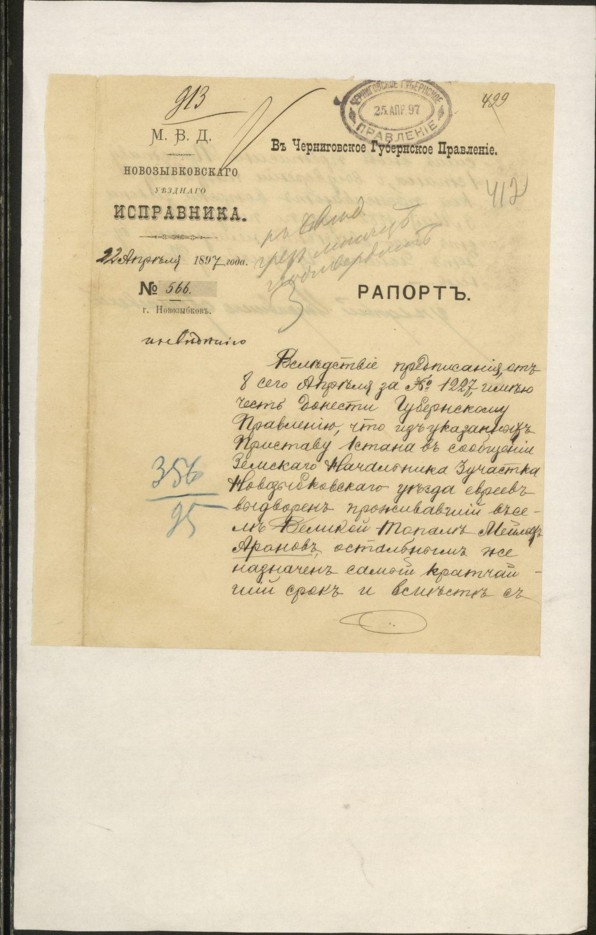 913
М. В. Д.
НОВОЗЫБКОВСКАГО
УѢЗДНАГО
ИСПРАВНИКА.
22 Апрѣля 1897 года.
№ 566.
г. Новозыбковъ.
ЧЕРНИГОВСКОЕ ГУБЕРНСКОЕ
25 АПР. 97
ПРАВЛЕНІЕ
499
Въ Черниговское Губернское Правленіе.
412
РАПОРТЪ.
Вслѣдствіе предписанія, отъ
8 сего Апрѣля за № 1227, имѣю
честь донести Губернскому
Правленію, что изъ указанныхъ
Приставу 1 стана въ сообщеніи
Земскаго Начальника 3 участка
Новозыбковскаго уѣзда евреевъ
выдворенъ проживавшій въ се-
лѣ Великой Топалѣ Мейлахъ
Ароновъ, остальнымъ же
назначенъ самый кратчай-
шій срокъ и вмѣстѣ съ
356
95